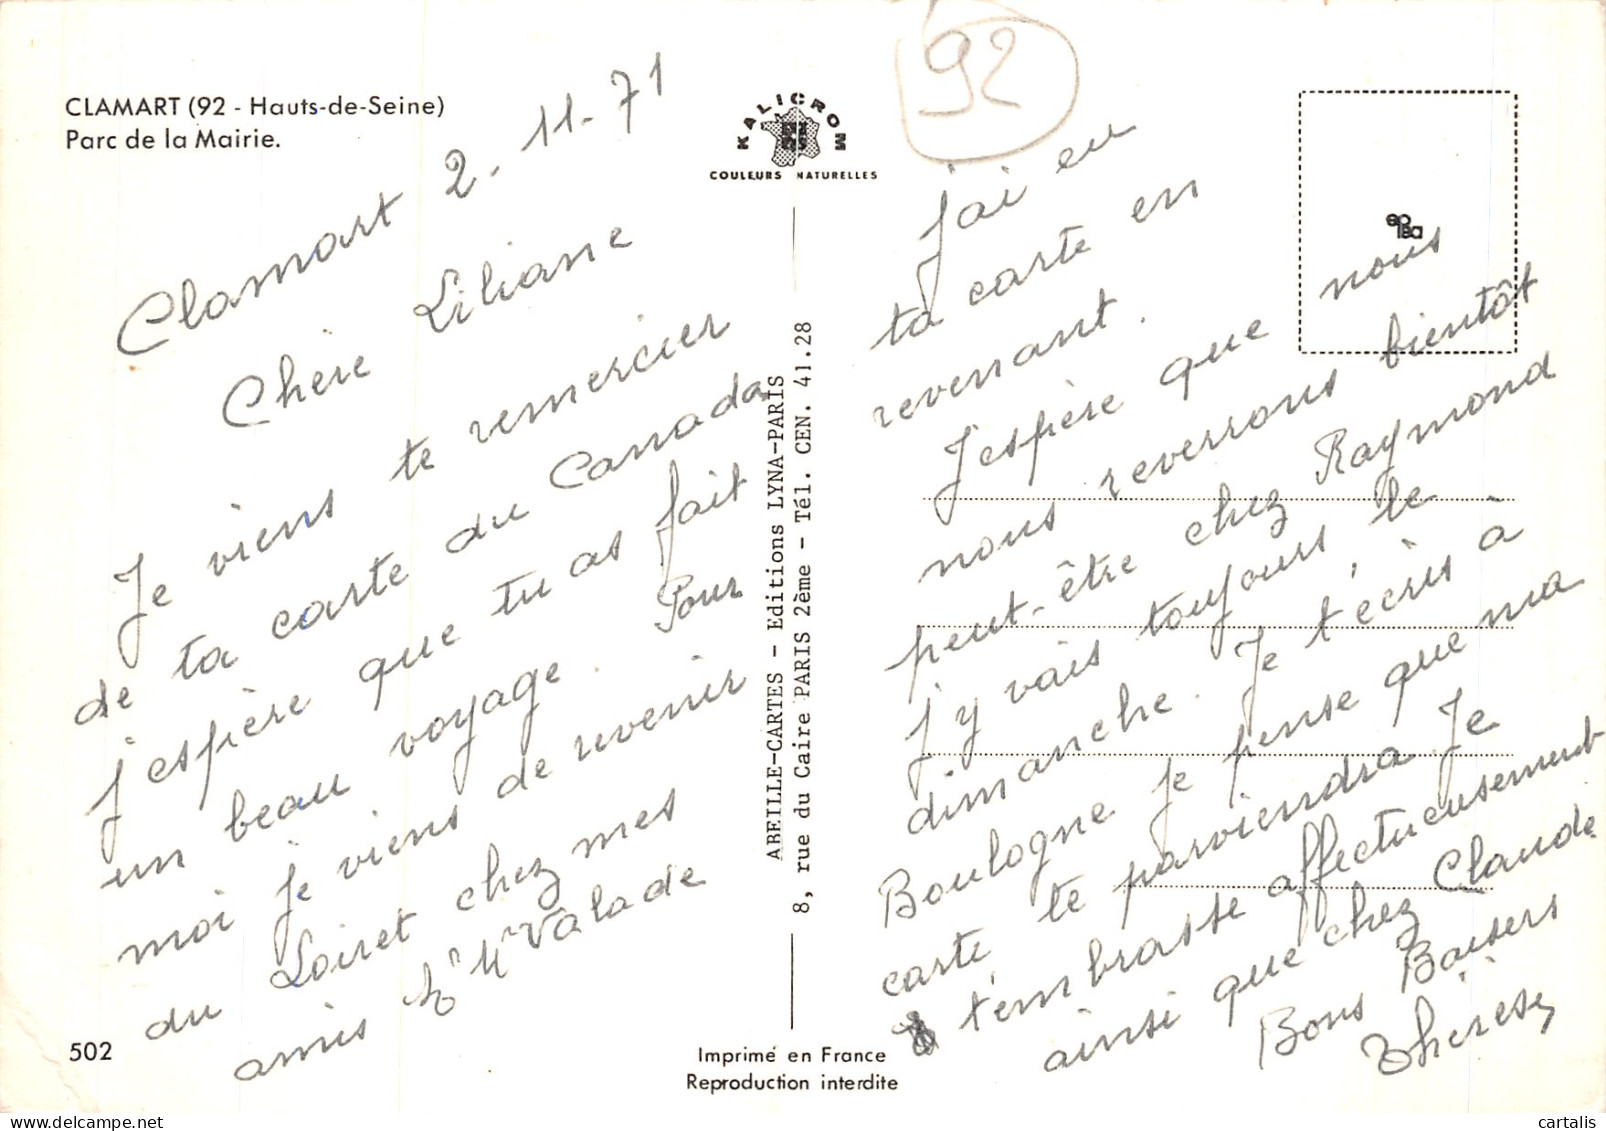 CLAMART (92 - Hauts-de-Seine)
Parc de la Mairie.
Clamart 2.11.71
Chère Liliane
Je viens te remercier
de ta carte du Canada
j'espère que tu as fait
un beau voyage. Pour
moi je viens de revenir
du Loiret chez mes
amis Mr Mme Valade
502
KALICROM
COULEURS NATURELLES
ABEILLE-CARTES - Editions LYNA-PARIS
8, rue du Caire PARIS 2ème - Tél. CEN. 41.28
Imprimé en France
Reproduction interdite
92
j'ai eu
ta carte en
revenant.
J'espère que nous
nous reverrons bientôt
peut-être chez Raymond
j'y vais toujours le
dimanche. Je t'écris à
Boulogne je pense que ma
carte te parviendra Je
t'embrasse affectueusement
ainsi que chez Claude
Bons Baisers
Thérèse
cartalis